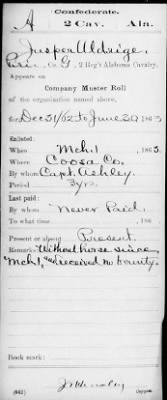 Confederate.
A 2 Cav. Ala.
Jasper Aldrige,
Co. G, 2 Reg't Alabama Cavalry.
Appears on
Company Muster Roll
of the organization named above,
for Dec 31/62 to June 30, 1863.
Enlisted:
When Mch. 1, 1863.
Where Coosa Co.
By whom Capt. Ashley.
Period 3 yrs.
Last paid:
By whom Never Paid.
To what time , 186 .
Present or absent Present.
Remarks: Without horse since
Mch. 1, and received no bounty.
Book mark:
(642) Copyist.